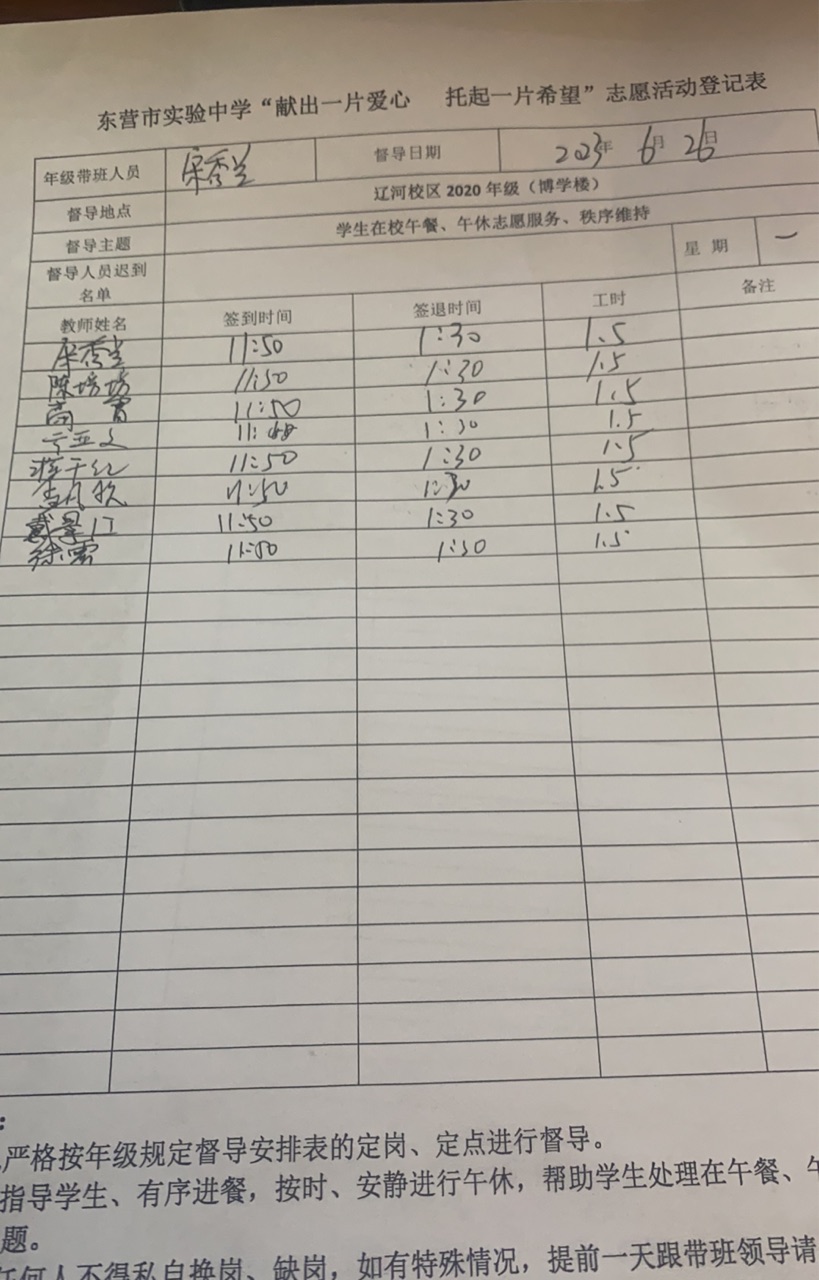 东营市实验中学“献出一片爱心 托起一片希望”志愿活动登记表
年级带班人员 宋秀兰 督导日期 2023年 6月 26日
督导地点 辽河校区 2020 年级（博学楼）
督导主题 学生在校午餐、午休志愿服务、秩序维持
督导人员迟到名单 星 期 一
教师姓名 签到时间 签退时间 工时 备注
宋秀兰 11:50 1:30 1.5
陈培培 11:50 1:30 1.5
高 11:50 1:30 1.5
11:48 1:30 1.5
11:50 1:30 1.5
11:50 1:30 1.5
戴景江 11:50 1:30 1.5
徐雷 11:50 1:30 1.5
：
严格按年级规定督导安排表的定岗、定点进行督导。
指导学生、有序进餐，按时、安静进行午休，帮助学生处理在午餐、午
题。
任何人不得私自换岗、缺岗，如有特殊情况，提前一天跟带班领导请